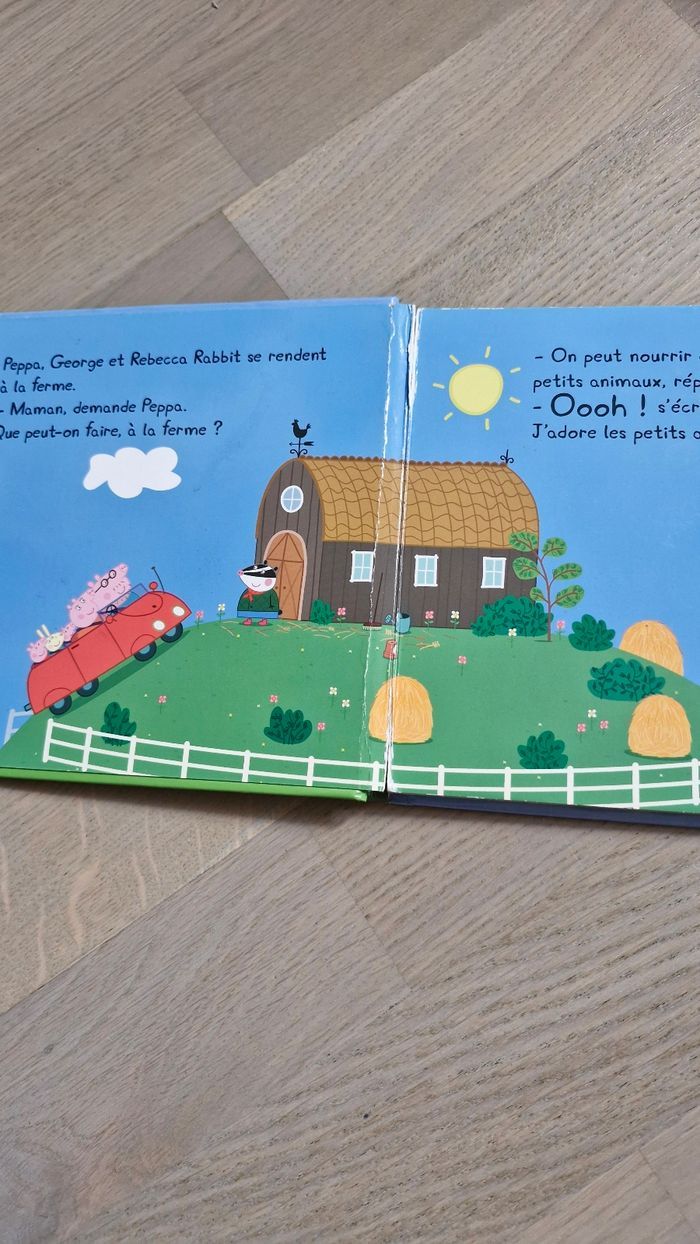 Peppa, George et Rebecca Rabbit se rendent
à la ferme.
- Maman, demande Peppa.
Que peut-on faire, à la ferme ?
- On peut nourrir
petits animaux,
- Oooh !
J'adore les petits